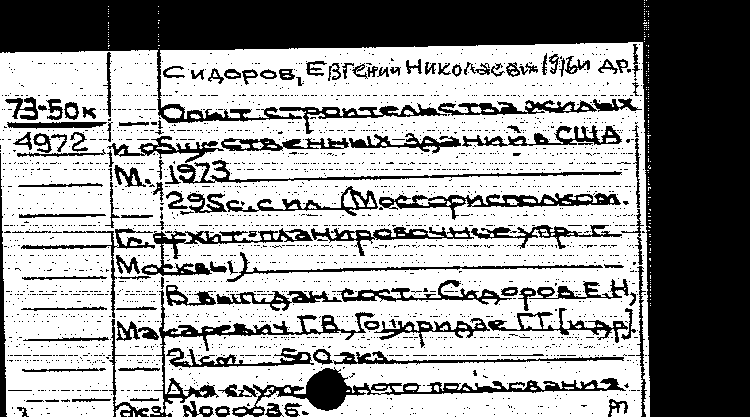 Сидоров, Евгений Николаевич 1916 и др.
73-50к Опыт строительства жилых
4972 и общественных зданий в США.
М., 1973
295с. с ил. (Мосгорисполком.
Гл. архит.-планировочное упр. г.
Москвы).
В вып. дан. сост.: Сидоров Е.Н,
Макаревич Г.В., Гоциридзе Г.Г. [и др].
21см. 500 экз.
Для служебного пользования.
Экз. №00035.